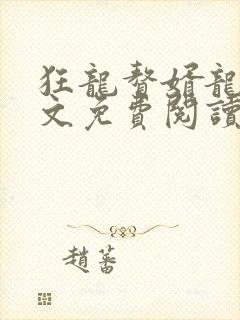 狂龍贅婿龍
文免費閱讀
趙蕃